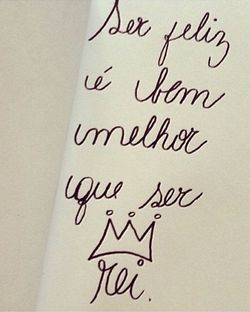 Ser feliz
é bem
melhor
que ser
rei.